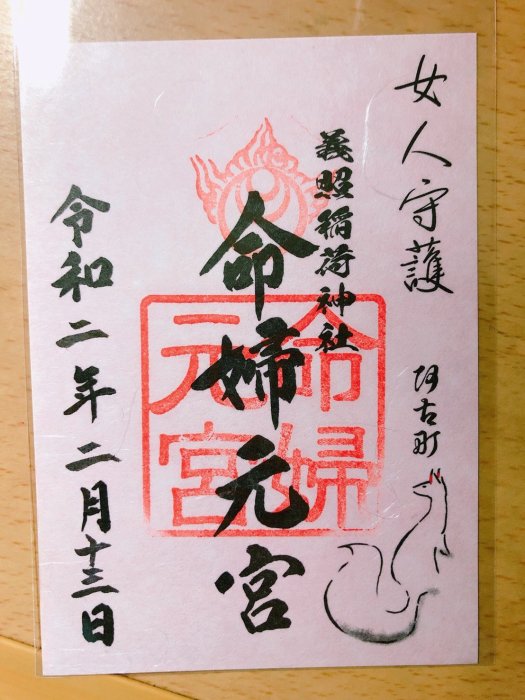 女人守護
阿古町
義照稲荷神社
命婦元宮
命婦元宮
令和二年二月十三日